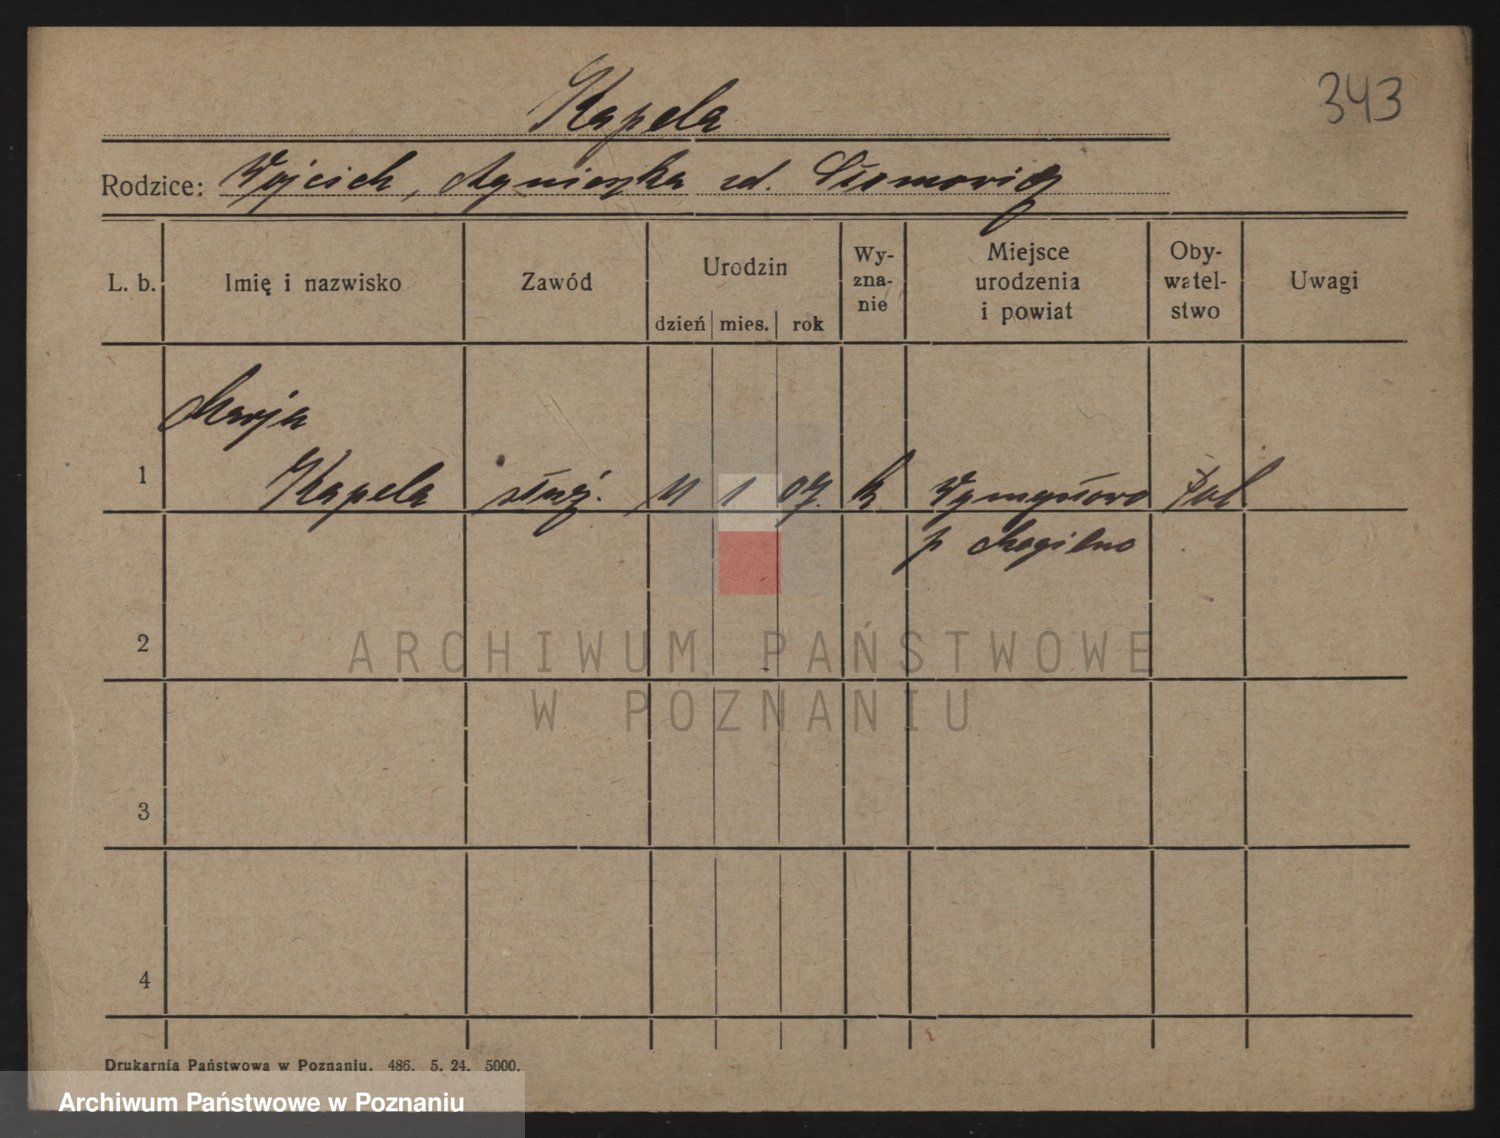 343
Kapela
Rodzice: Wojciech, Agnieszka zd.
L. b. Imię i nazwisko Zawód Urodzin dzień mies. rok Wy-zna-nie Miejsce urodzenia i powiat Oby-watel-stwo Uwagi
Marja
1 Kapela służ. 11 1 07. k Wymysłowo pol
p Mogilno
2
ARCHIWUM PAŃSTWOWE
W POZNANIU
3
4
Drukarnia Państwowa w Poznaniu. 486. 5. 24. 5000.
Archiwum Państwowe w Poznaniu